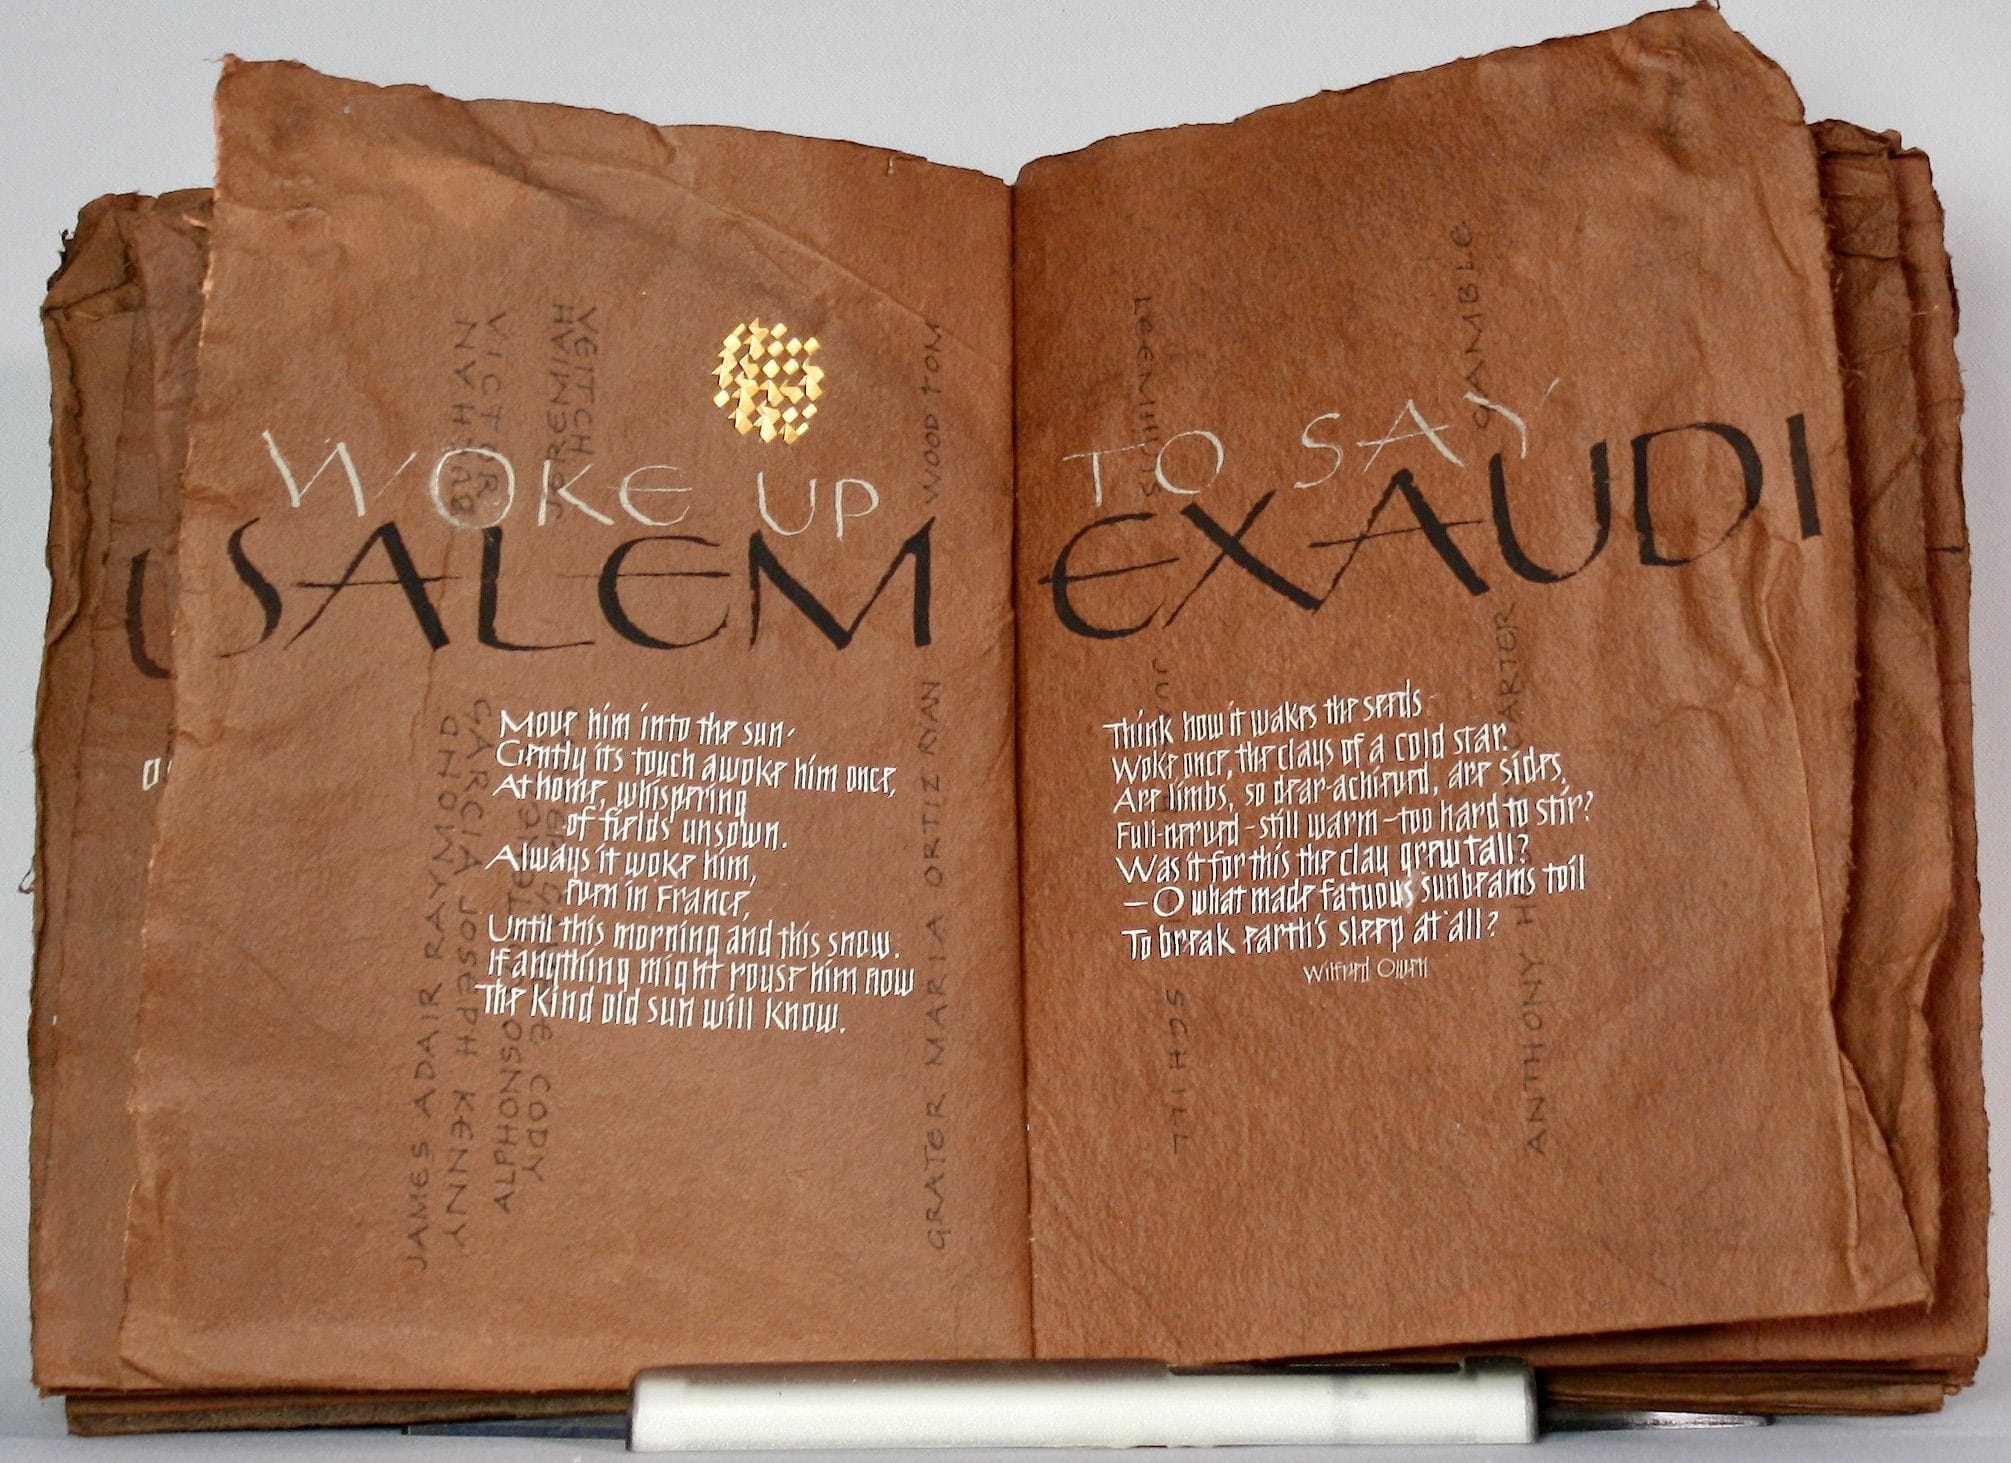 WOKE UP TO SAY
USALEM EXAUDI
Move him into the sun-
Gently its touch awoke him once,
At home, whispering
of fields unsown.
Always it woke him,
even in France,
Until this morning and this snow.
If anything might rouse him now
The kind old sun will know.
Think how it wakes the seeds
Woke once, the clays of a cold star.
Are limbs, so dear-achieved, are sides,
Full-nerved - still warm - too hard to stir?
Was it for this the clay grew tall?
- O what made fatuous sunbeams toil
To break earth's sleep at all?
Wilfred Owen
VICTOR
VEITCH
JOREMIAH
WOOD TOM
JAMES ADAIR RAYMOND
GARCIA JOSEPH KENNY
ALPHONSO
CODY
GRATER MARIA ORTIZ RYAN
SCHILL
GAMBLE
ANTHONY
CARTER